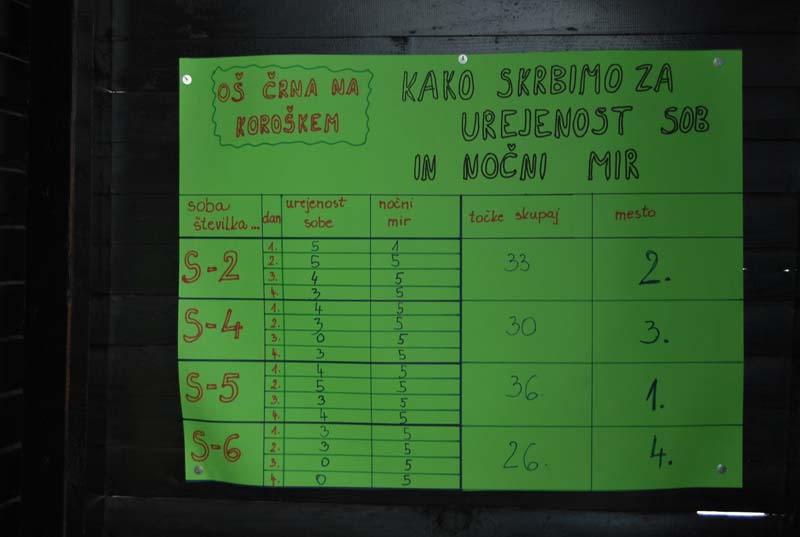 OŠ ČRNA NA
KOROŠKEM
KAKO SKRBIMO ZA
UREJENOST SOB
IN NOČNI MIR
soba številka... dan urejenost sobe nočni mir točke skupaj mesto
S-2 33 2.
1. 5 1
2. 5 5
3. 4 5
4. 3 5
S-4 30 3.
1. 4 5
2. 3 5
3. 0 5
4. 3 5
S-5 36. 1.
1. 4 5
2. 5 5
3. 3 5
4. 4 5
S-6 26. 4.
1. 3 5
2. 3 5
3. 0 5
4. 0 5